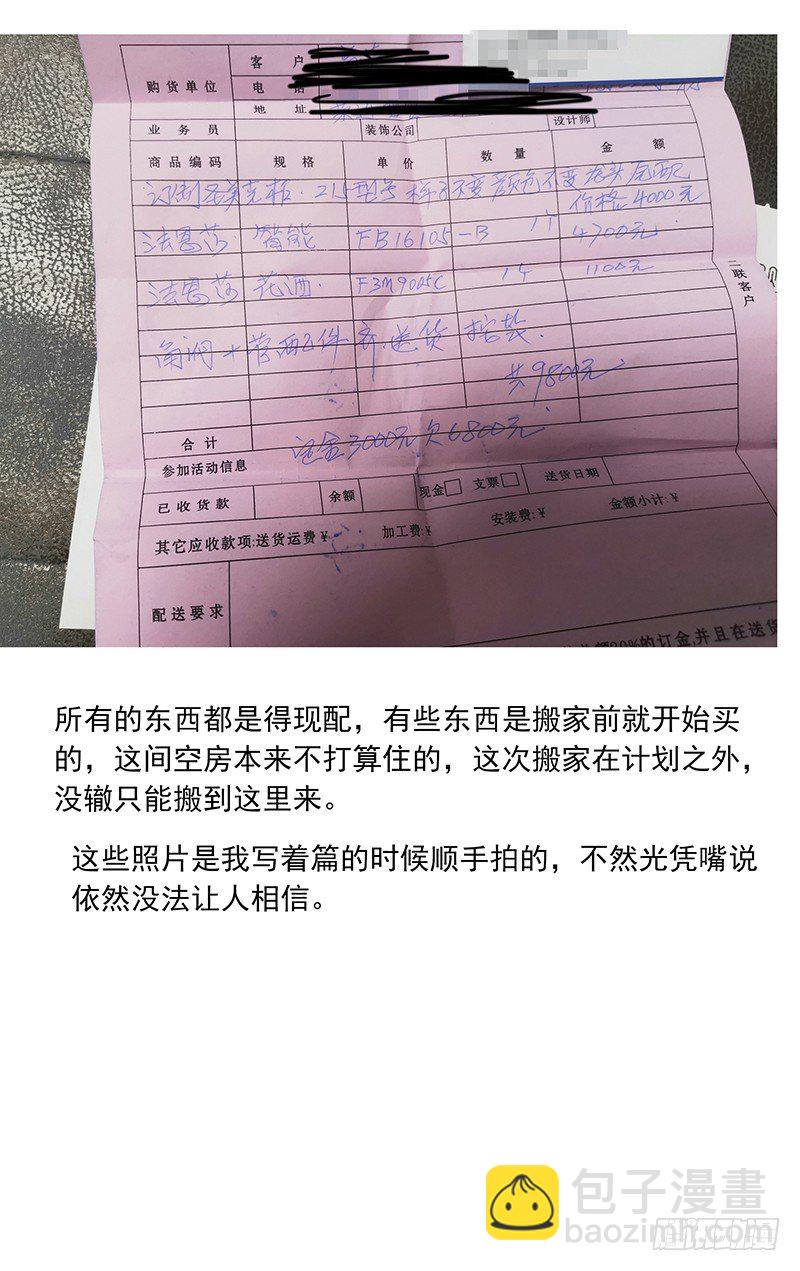 购货单位
客户
电话
地址
业务员 装饰公司 设计师
商品编码 规格 单价 数量 金额
订制 柜.215型号 样子不变 颜色不变 龙头
价格4000元
法恩莎 智能 FB16105-B 1个 4700元
法恩莎 花洒. F3M9005C 1个 1100元
角阀+ 配件 齐 送货 安装.
共9800元
合计
定金3000元 欠6800元.
参加活动信息
已收货款 余额 现金 支票 送货日期
其它应收款项:送货运费¥ 加工费:¥ 安装费:¥ 金额小计:¥
配送要求
20%的订金,并且在送货
二联客户
所有的东西都是得现配，有些东西是搬家前就开始买
的，这间空房本来不打算住的，这次搬家在计划之外，
没辙只能搬到这里来。
这些照片是我写着篇的时候顺手拍的，不然光凭嘴说
依然没法让人相信。
包子漫畫
baozimh.com